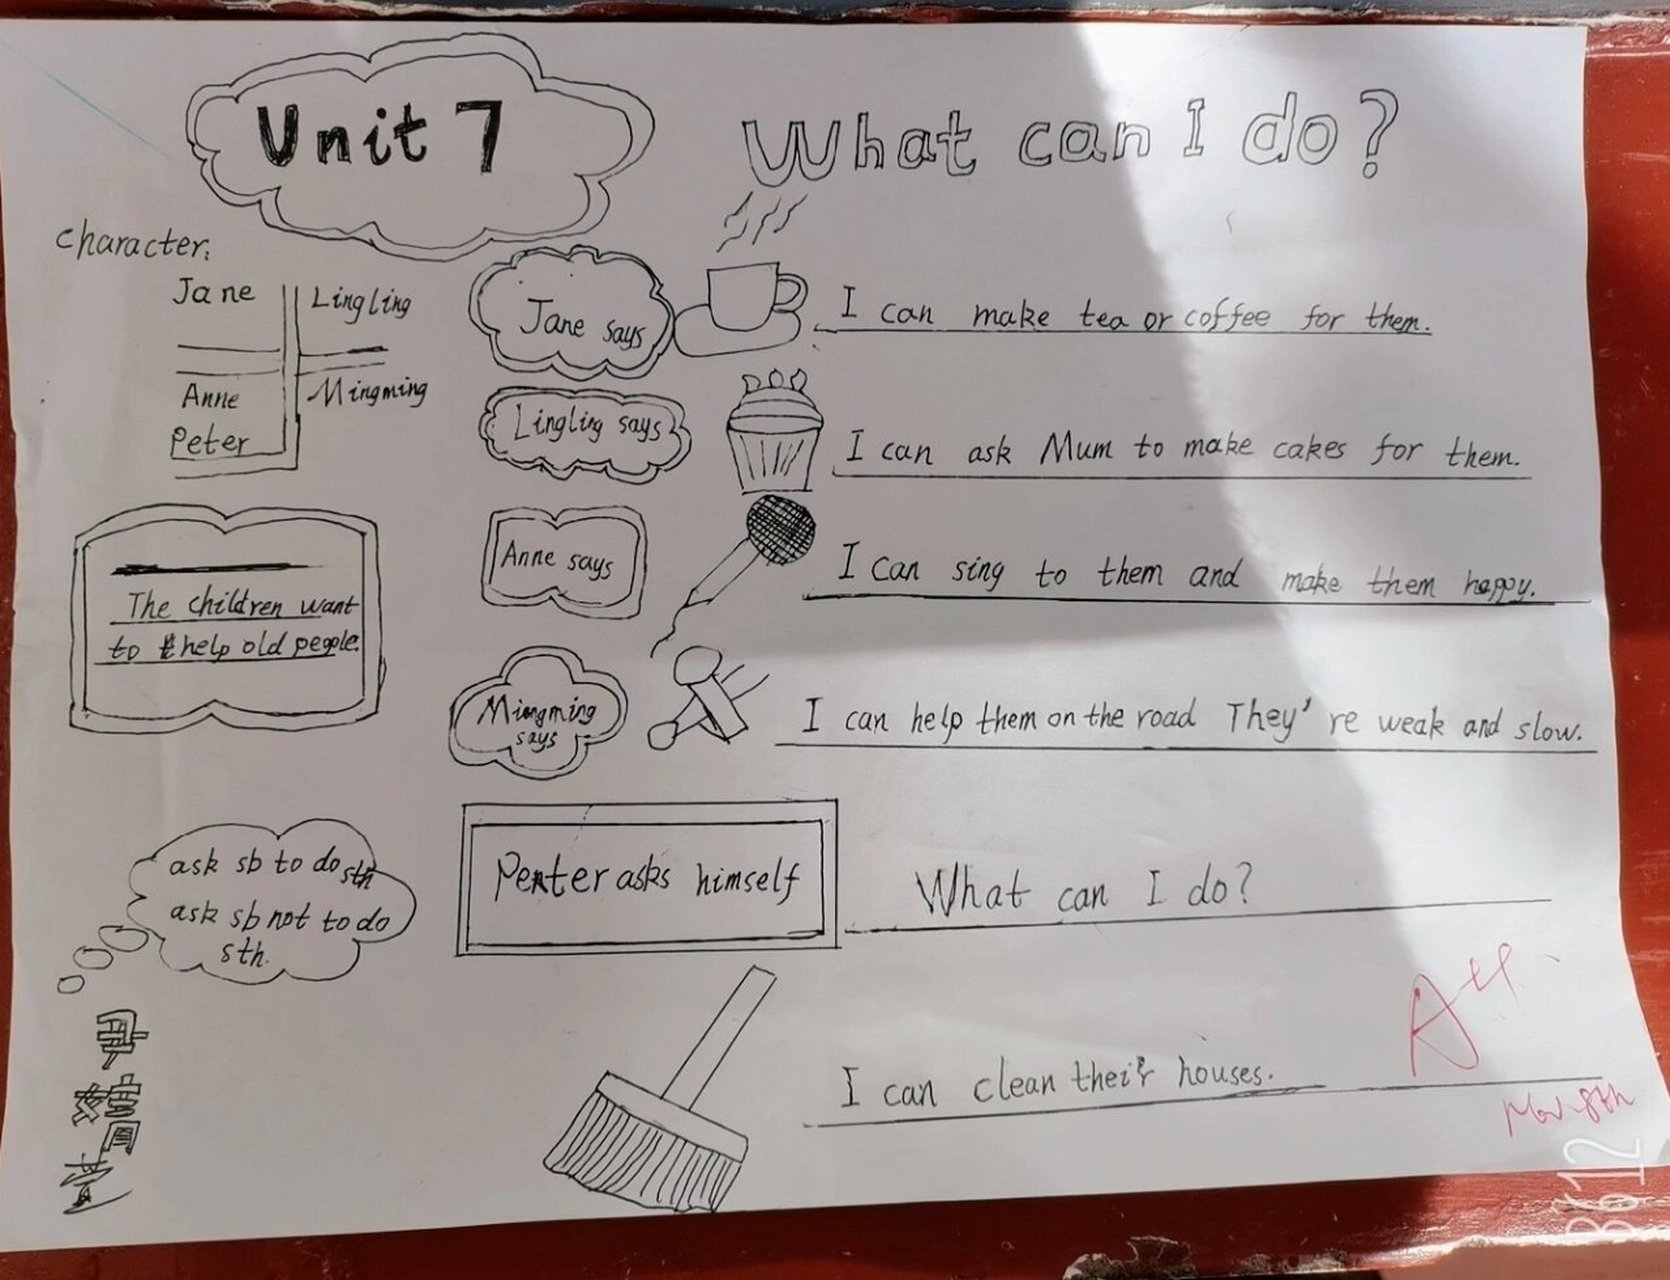 Unit 7
What can I do?
character:
Jane
Lingling
Anne
Mingming
Peter
Jane says
I can make tea or coffee for them.
Lingling says
I can ask Mum to make cakes for them.
Anne says
I can sing to them and make them happy.
The children want
to help old people.
Mingming
says
I can help them on the road They're weak and slow.
ask sb to do sth
ask sb not to do
sth.
Peter asks himself
What can I do?
I can clean their houses.
A++
Nov 8th
B612